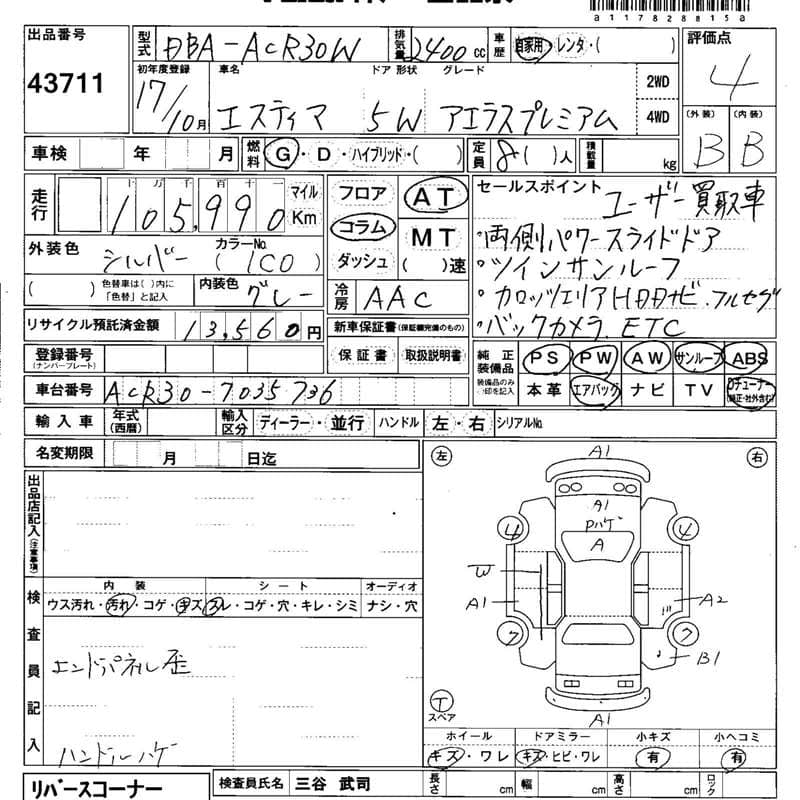 a117828815a
出品番号
43711
型式 DBA-ACR30W 排気量 2400 cc 車歴 自家用・レンタ・( )
評価点
4
初年度登録 17/10月
車名 ドア 形状 グレード
エスティマ 5W アエラスプレミアム
2WD
4WD
(外装) B (内装) B
車検 年 月 燃料 G・D・ハイブリッド・( ) 定員 8( )人 積載量 kg
走行 十万千百十一 105,990 マイル Km
外装色 シルバー カラーNo. (1C0)
( ) 色替車は( )内に「色替」と記入 内装色 グレー
フロア
コラム
ダッシュ
AT
MT
( )速
冷房 AAC
セールスポイント ユーザー買取車
・両側パワースライドドア
・ツインサンルーフ
・カロッツェリアHDDナビ.フルセグ
・バックカメラ.ETC
リサイクル預託済金額 13,560円
新車保証書(保証継続完備のもの)
保証書 取扱説明書
登録番号
(ナンバープレート)
車台番号 ACR30-7035736
純正装備品 PS PW AW サンルーフ ABS
装備品のみ○印を記入 本革 エアバック ナビ TV Dチューナー(純正・社外含む)
輸入車 年式(西暦) 輸入区分 ディーラー・並行 ハンドル 左・右 シリアルNo.
名変期限 月 日迄
出品店記入(注意事項)
検査員記入
内装 シート オーディオ
ウス汚れ・汚れ・コゲ・キズ スレ・コゲ・穴・キレ・シミ ナシ・穴
エンドパネル歪
ハンドルハゲ
左 右
A1
A1
Pハゲ
A
4 4
W
A1 A2
7 7
B1
T
スペア
A1
ホイール ドアミラー 小キズ 小ヘコミ
キズ・ワレ キズ・ヒビ・ワレ 有 有
リバースコーナー
検査員氏名 三谷 武司 長さ cm 幅 cm 高さ cm ロック